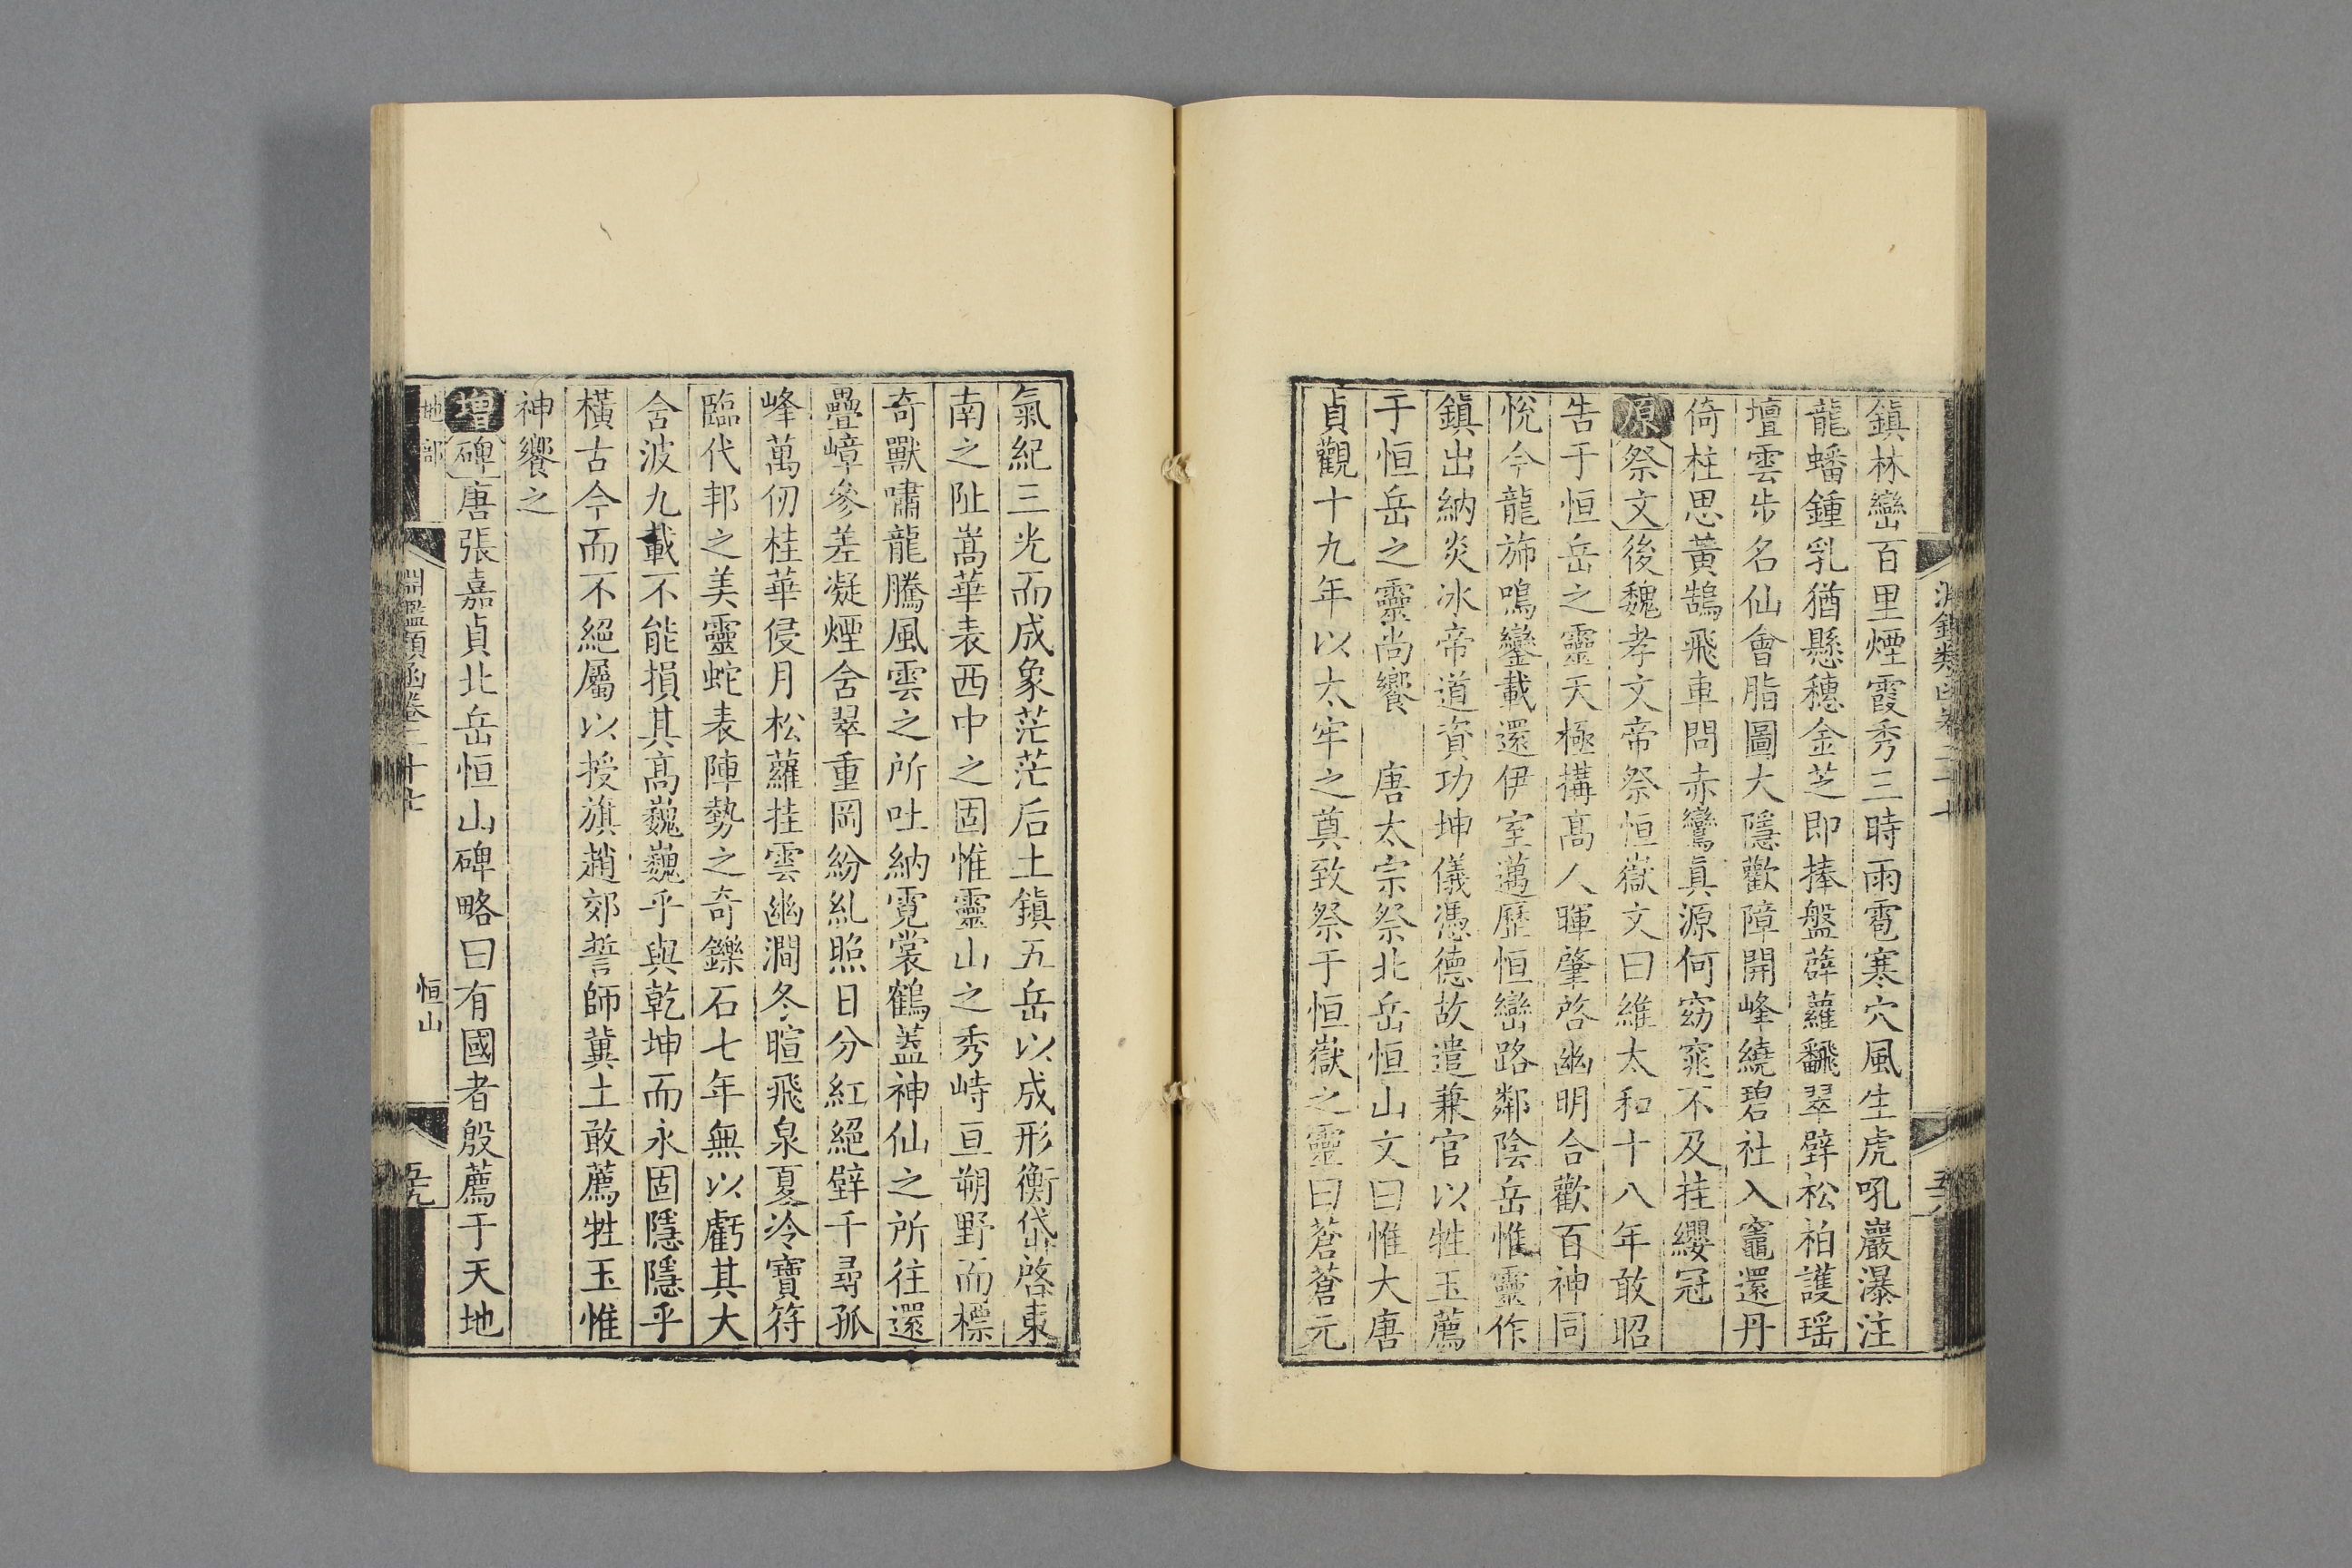 鎮林巒百里煙霞秀三時雨雹寒穴風生虎吼巖瀑注
龍蟠鍾乳猶懸穗金芝即捧盤薜蘿飜翠壁松柏護瑶
壇雲步名仙會脂圖大隱歡障開峰繞碧社入竈還丹
倚柱思黃鵠飛車問赤鸞真源何窈窕不及挂纓冠
原祭文後魏孝文帝祭恒嶽文曰維太和十八年敢昭
告于恒岳之靈天極搆髙人暉肇啓幽明合歡百神同
悅今龍斾鳴鑾載還伊室邁歷恒巒路鄰陰岳惟靈作
鎮出納炎冰帝道資功坤儀憑德故遣兼官以牲玉薦
于恒岳之靈尚饗 唐太宗祭北岳恒山文曰惟大唐
貞觀十九年以太牢之奠致祭于恒嶽之靈曰蒼蒼元
氣紀三光而成象茫茫后土鎮五岳以成形衡岱啓東
南之阯嵩華表西中之固惟靈山之秀峙亘朔野而標
奇獸嘯龍騰風雲之所吐納霓裳鶴蓋神仙之所往還
疊嶂參差凝煙含翠重岡紛糺照日分紅絕壁千尋孤
峰萬仞桂華侵月松蘿挂雲幽澗冬暄飛泉夏冷寶符
臨代邦之美靈蛇表陣勢之奇鑠石七年無以虧其大
含波九載不能損其髙巍巍乎與乾坤而永固隱隱乎
橫古今而不絕屬以授旗趙郊誓師冀土敢薦牲玉惟
神饗之
增碑唐張嘉貞北岳恒山碑略曰有國者殷薦于天地
地部
淵鑑類函卷二十七
恒山